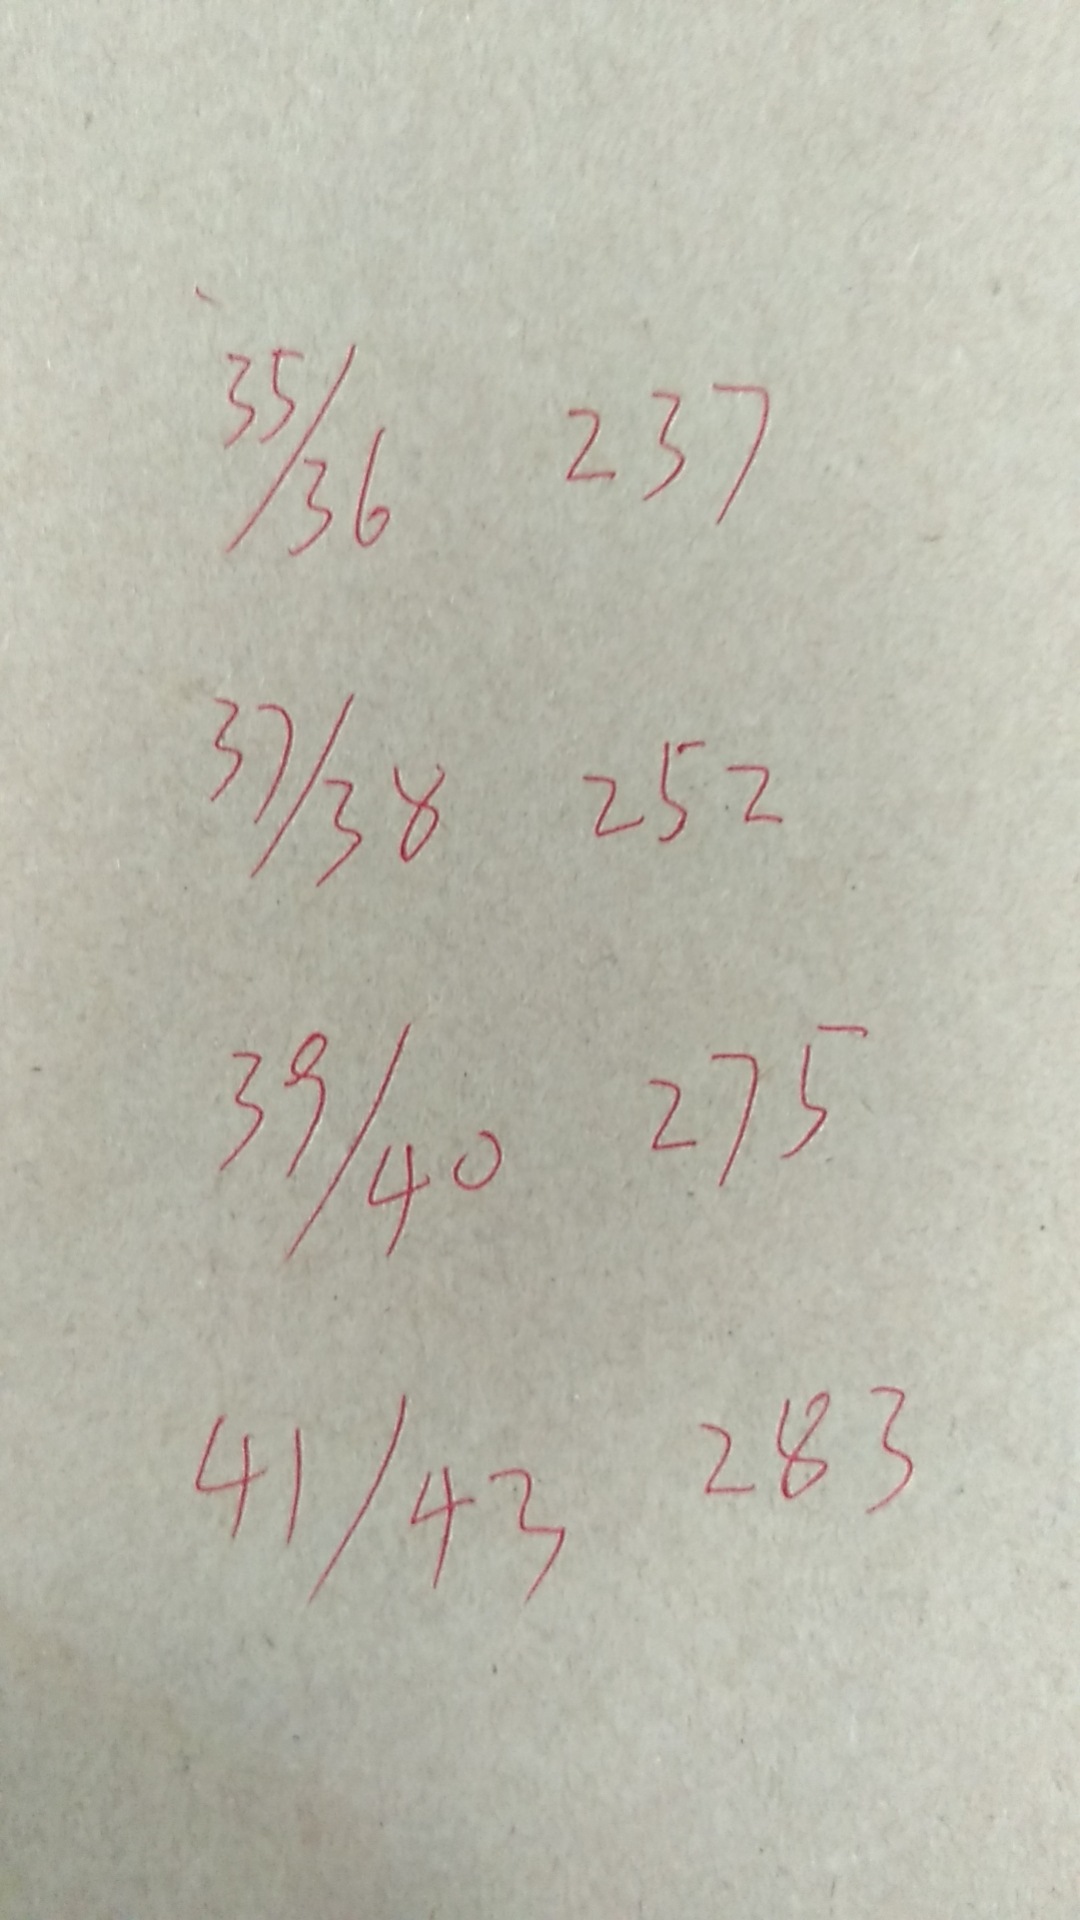 35/36 237
37/38 252
39/40 275
41/43 283